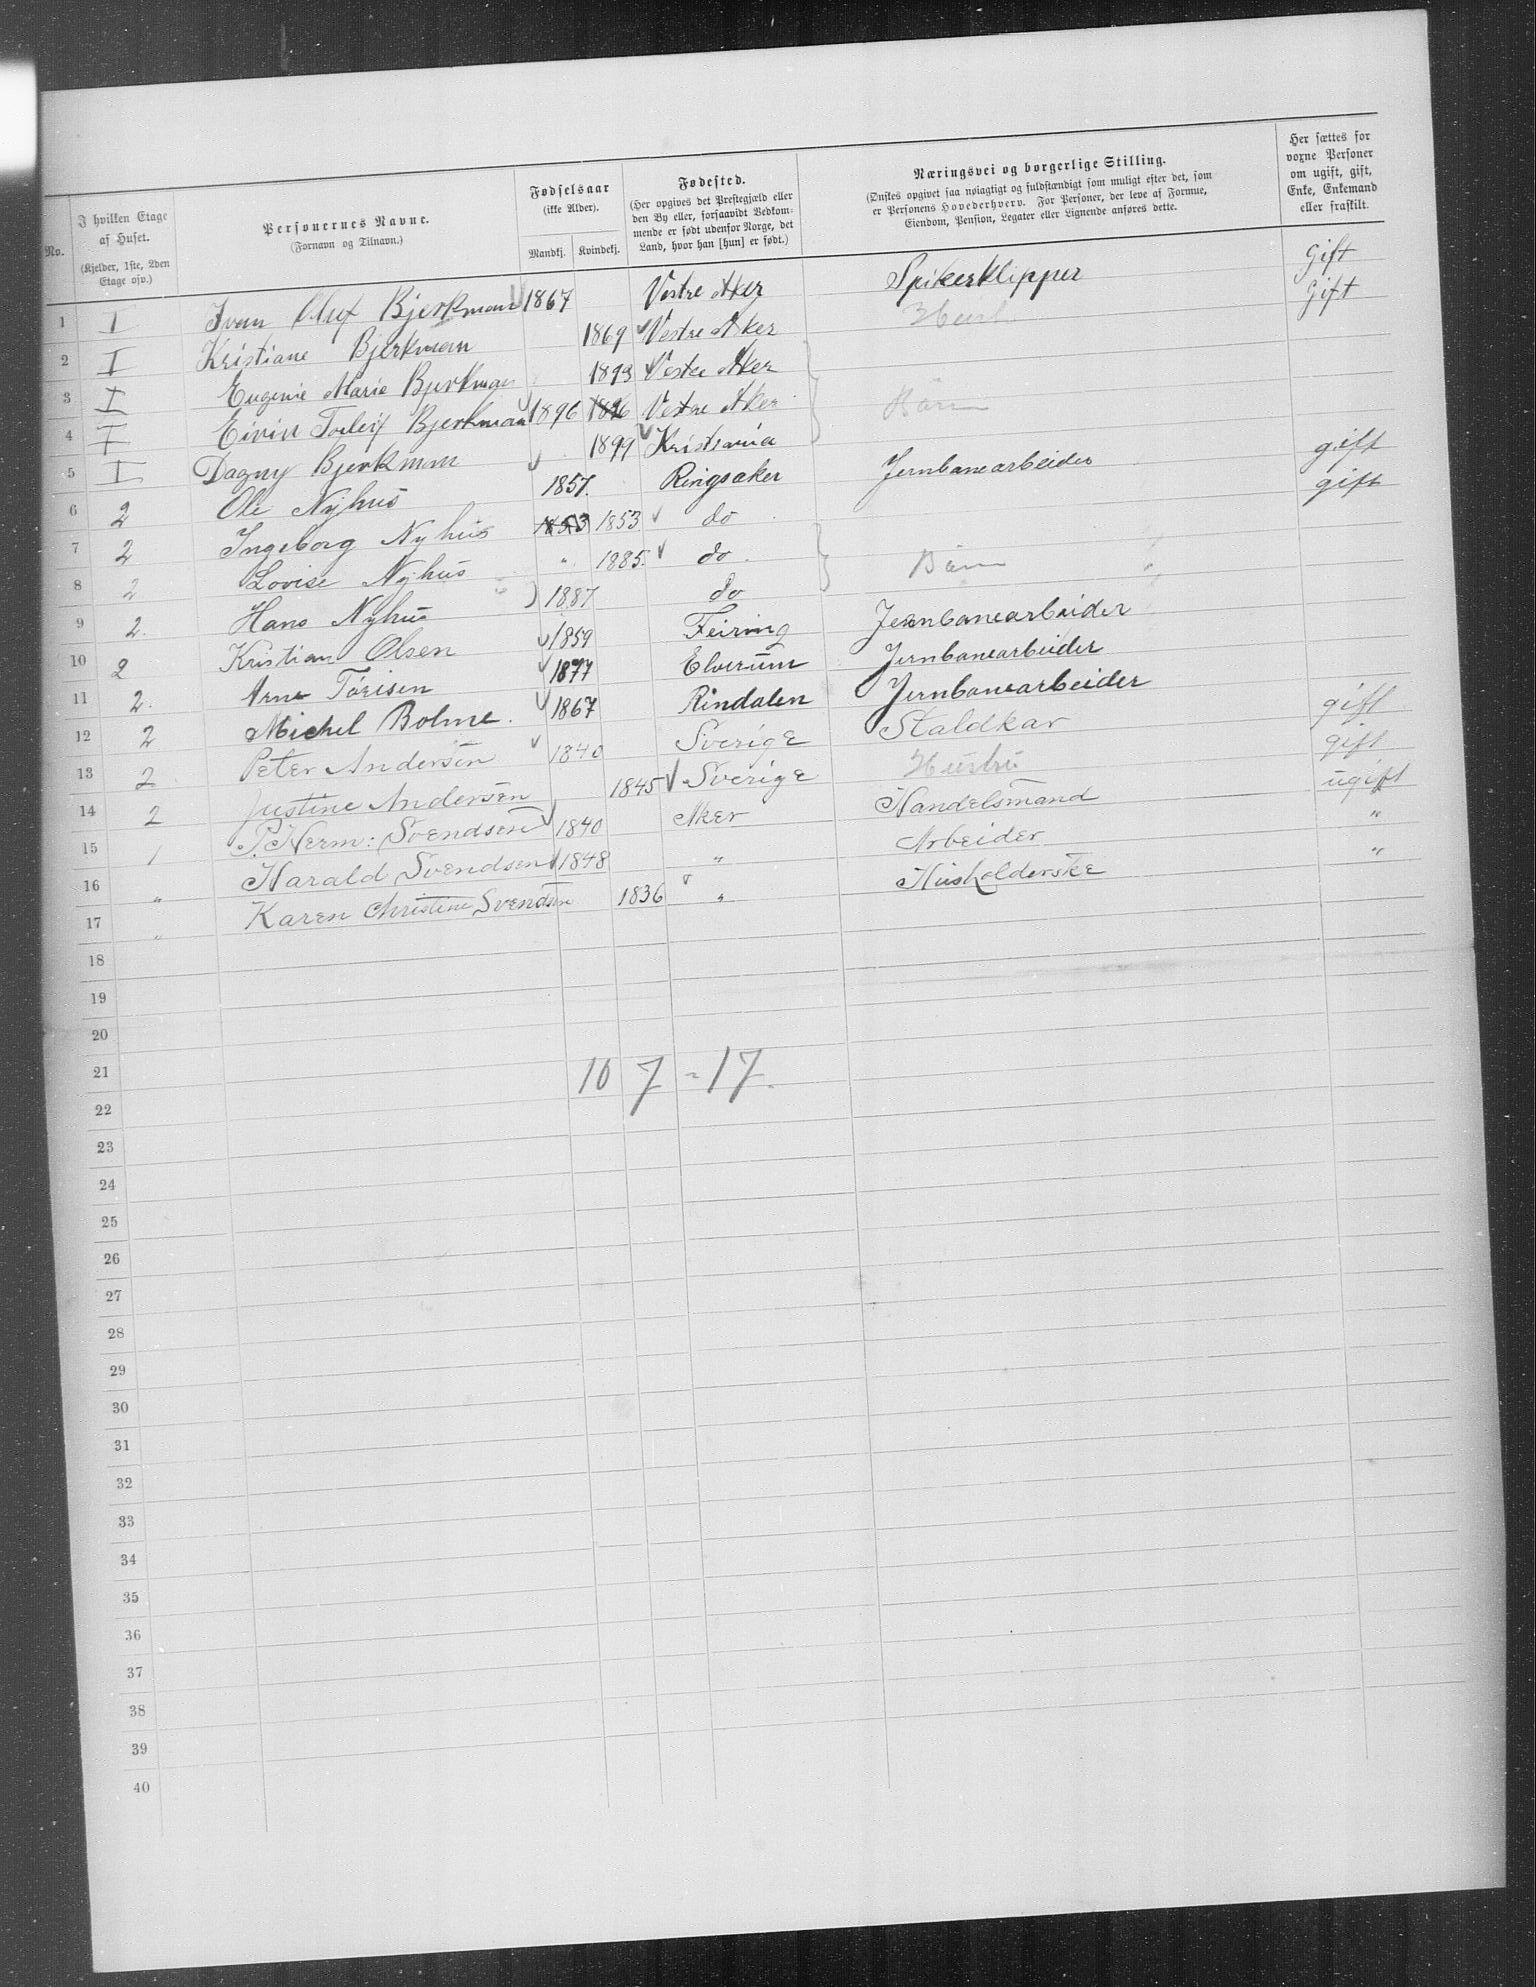 No.
I hvilken Etage af Huset.
(Kjelder, 1ste, 2den Etage osv.)
Personernes Navne.
(Fornavn og Tilnavn.)
Fødselsaar
(ikke Alder).
Mandkj. Kvindekj.
Fødested.
(Her opgives det Prestegjæld eller den By eller, forsaavidt Vedkommende er født udenfor Norge, det Land, hvor han [hun] er født.)
Næringsvei og borgerlige Stilling.
(Ønskes opgivet saa nøiagtigt og fuldstændigt som muligt efter det, som er Personens Hovederhverv. For Personer, der leve af Formue, Eiendom, Pension, Legater eller Lignende anføres dette.
Her sættes for voxne Personer om ugift, gift, Enke, Enkemand eller fraskilt.
1 I Iver Oluf Bjerkman 1867 Vestre Aker Spikerklipper Gift
2 I Kristiane Bjerkman 1869 Vestre Aker Hust Gift
3 I Eugenie Marie Bjerkman 1893 Vestre Aker
4 I Eivin Torleif Bjerkman 1896 1896 Vestre Aker Børn
5 I Dagny Bjerkman 1899 Kristiania
6 2 Ole Nyhus 1857. Ringsaker Jernbanearbeider gift
7 2 Ingeborg Nyhus 1853 1853 do gift
8 2 Lovise Nyhus " 1885. do. Børn
9 2. Hans Nyhus 1887 do
10 2 Kristian Olsen 1859 Feiring Jernbanearbeider
11 2. Arne Tørisen 1877 Elverum Jernbanearbeider
12 2 Michel Bolme. 1867 Rindalen Jernbanearbeider
13 2 Peter Andersen 1840 Sverige Staldkar gift
14 2 Justine Andersen 1845 Sverige Hustru gift
15 1 P. Herm: Svendsen 1840 Aker Handelsmand ugift
16 " Harald Svendsen 1848 " Arbeider "
17 " Karen Christine Svendsen 1836 " Husholderske "
18
19
20
21 10 7 = 17.
22
23
24
25
26
27
28
29
30
31
32
33
34
35
36
37
38
39
40